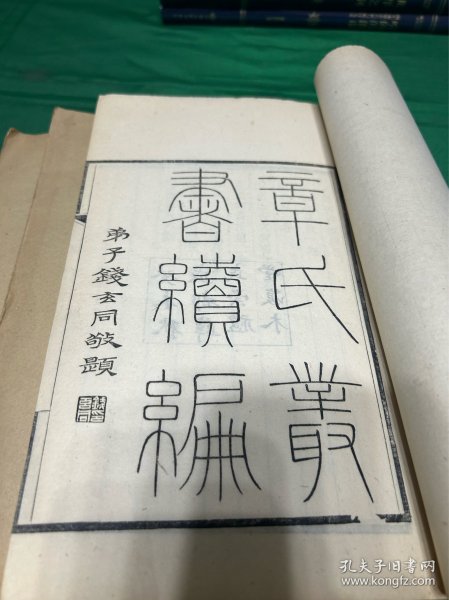 章氏叢
書續編
弟子錢玄同敬題
孔夫子旧书网
www.kongfz.com